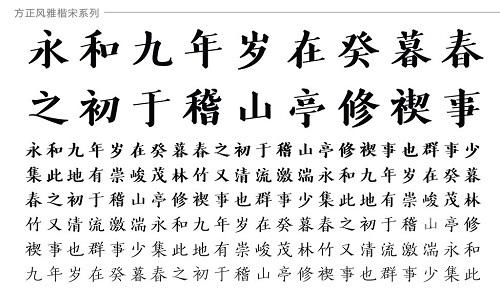 方正风雅楷宋系列
永和九年岁在癸暮春
之初于稽山亭修禊事
永和九年岁在癸暮春之初于稽山亭修禊事也群事少
集此地有崇峻茂林竹又清流激湍永和九年岁在癸暮
春之初于稽山亭修禊事也群事少集此地有崇峻茂林
竹又清流激湍永和九年岁在癸暮春之初于稽山亭修
禊事也群事少集此地有崇峻茂林竹又清流激湍永和
九年岁在癸暮春之初于稽山亭修禊事也群事少集此